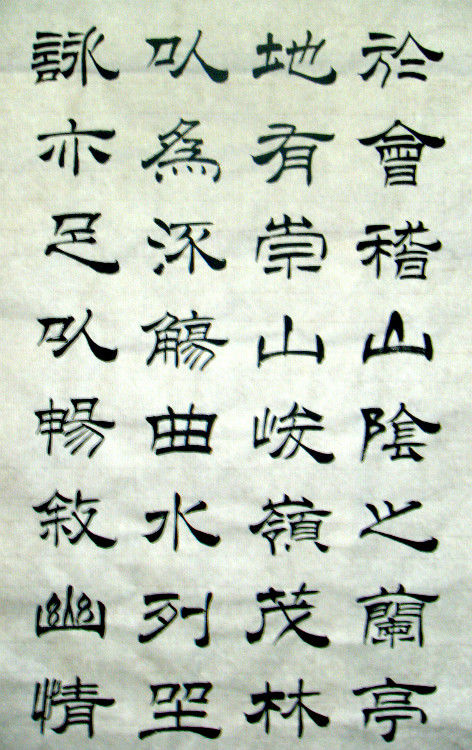 於會稽山陰之蘭亭
地有崇山峻嶺茂林
以為流觴曲水列坐
詠亦足以暢敘幽情